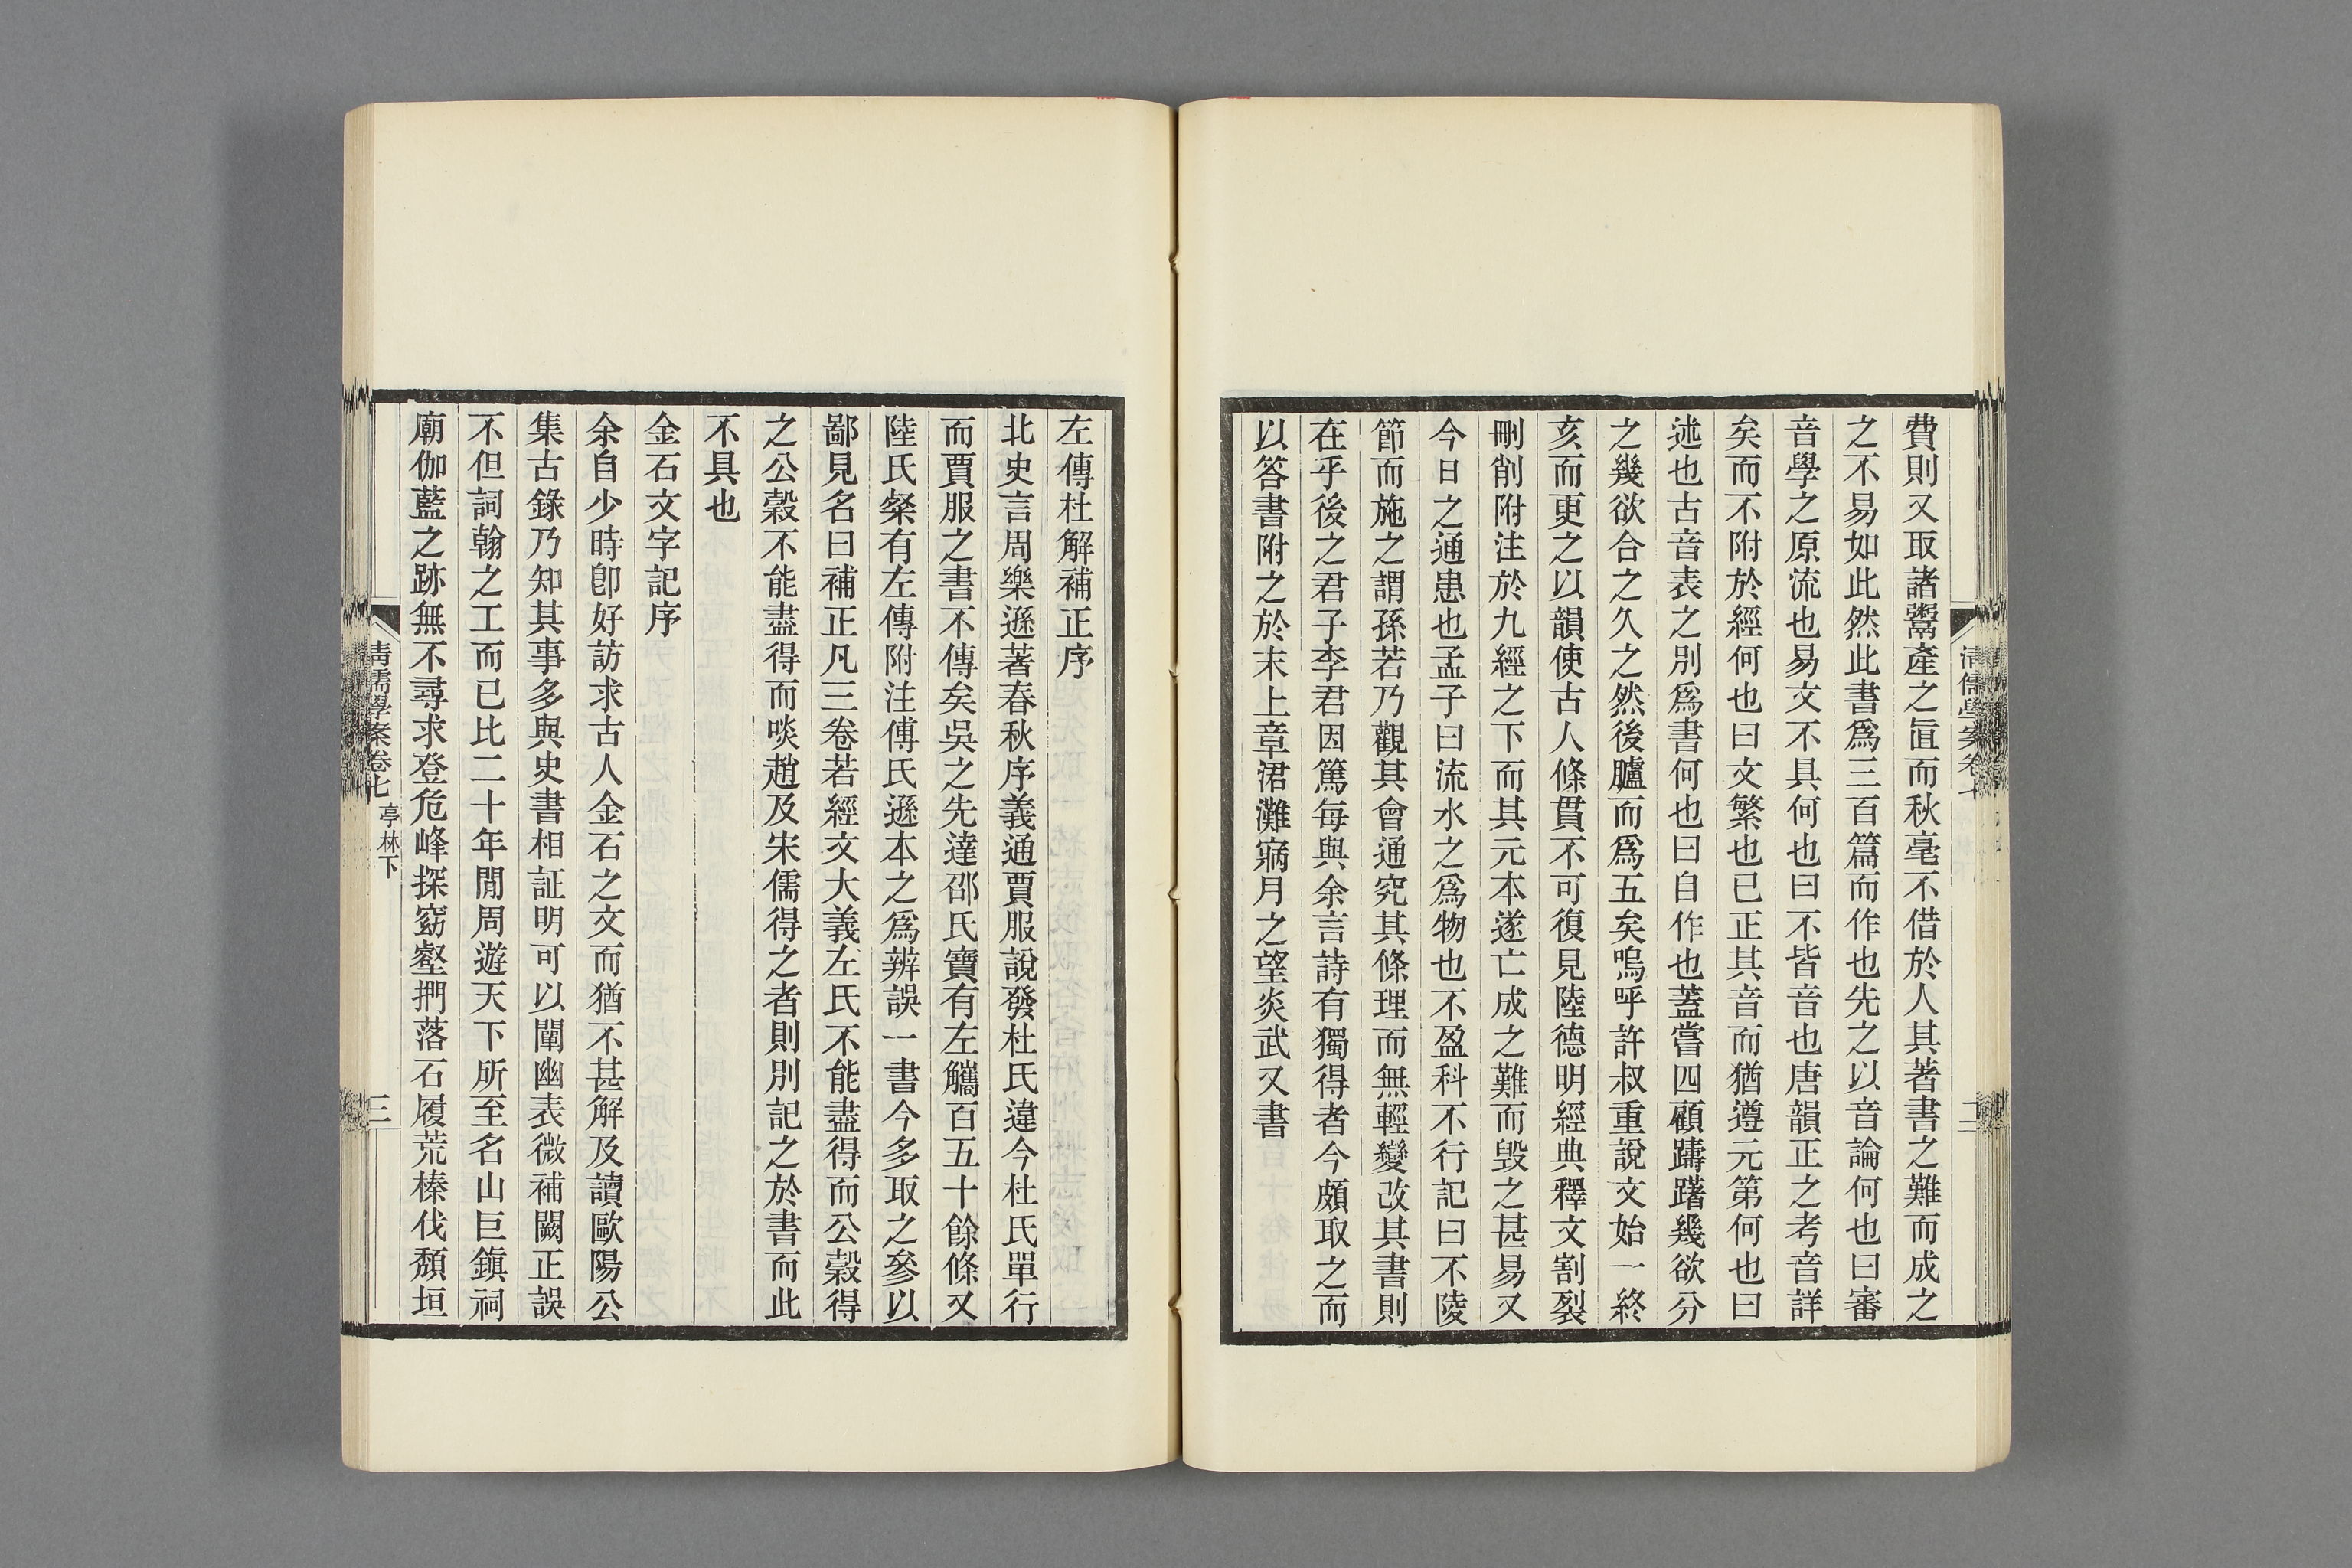 費則又取諸鬻產之直而秋毫不借於人其著書之難而成之
之不易如此然此書爲三百篇而作也先之以音論何也曰審
音學之原流也易文不具何也曰不皆音也唐韻正之考音詳
矣而不附於經何也曰文繁也已正其音而猶遵元第何也曰
述也古音表之別爲書何也曰自作也蓋嘗四顧躊躇幾欲分
之幾欲合之久之然後臚而爲五矣嗚呼許叔重說文始一終
亥而更之以韻使古人條貫不可復見陸德明經典釋文割裂
刪削附注於九經之下而其元本遂亡成之難而毀之甚易又
今日之通患也孟子曰流水之爲物也不盈科不行記曰不陵
節而施之謂孫若乃觀其會通究其條理而無輕變改其書則
在乎後之君子李君因篤每與余言詩有獨得者今頗取之而
以答書附之於末上章涒灘寎月之望炎武又書
清儒學案卷七
二
左傳杜解補正序
北史言周樂遜著春秋序義通賈服說發杜氏違今杜氏單行
而賈服之書不傳矣吳之先達邵氏寶有左觿百五十餘條又
陸氏粲有左傳附注傅氏遜本之爲辨誤一書今多取之參以
鄙見名曰補正凡三卷若經文大義左氏不能盡得而公穀得
之公穀不能盡得而啖趙及宋儒得之者則別記之於書而此
不具也
金石文字記序
余自少時卽好訪求古人金石之文而猶不甚解及讀歐陽公
集古錄乃知其事多與史書相証明可以闡幽表微補闕正誤
不但詞翰之工而已比二十年閒周遊天下所至名山巨鎭祠
廟伽藍之跡無不尋求登危峰探窈壑捫落石履荒榛伐頹垣
清儒學案卷七 亭林下
三